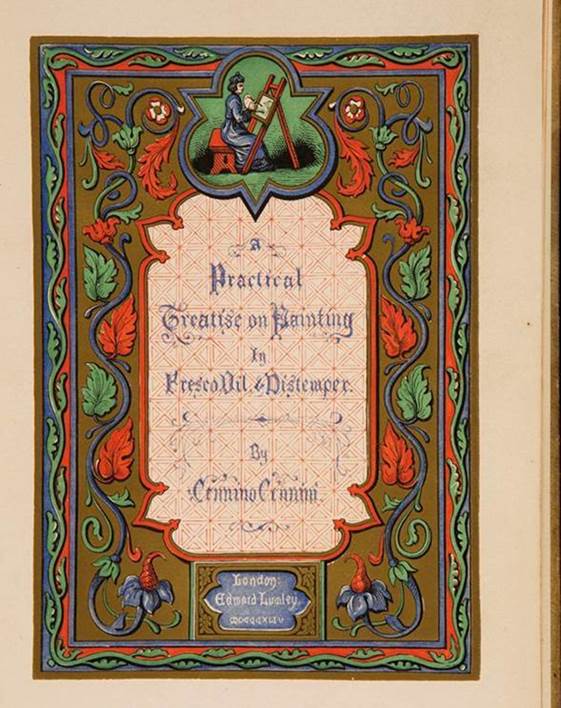 A
Practical
Treatise on Painting
In
Fresco Oil, & Distemper.
By
Cennino Cennini
London:
Edward Lumley.
MDCCCXLIV